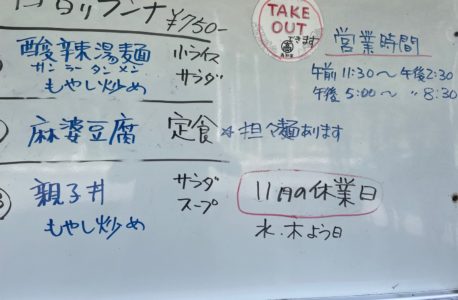 日替りランチ ¥750-
TAKE OUT
できます
営業時間
午前 11:30〜午後2:30
午後 5:00〜 〃 8:30
酸辣湯麺 小ライス
サンラータンメン サラダ
もやし炒め
麻婆豆腐 定食 ※担々麺あります
③ 親子丼 サラダ
もやし炒め スープ
11月の休業日
水・木よう日